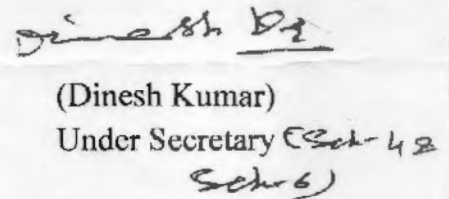 Dinesh Kr
(Dinesh Kumar)
Under Secretary (Sch-4 &
Sch-6)